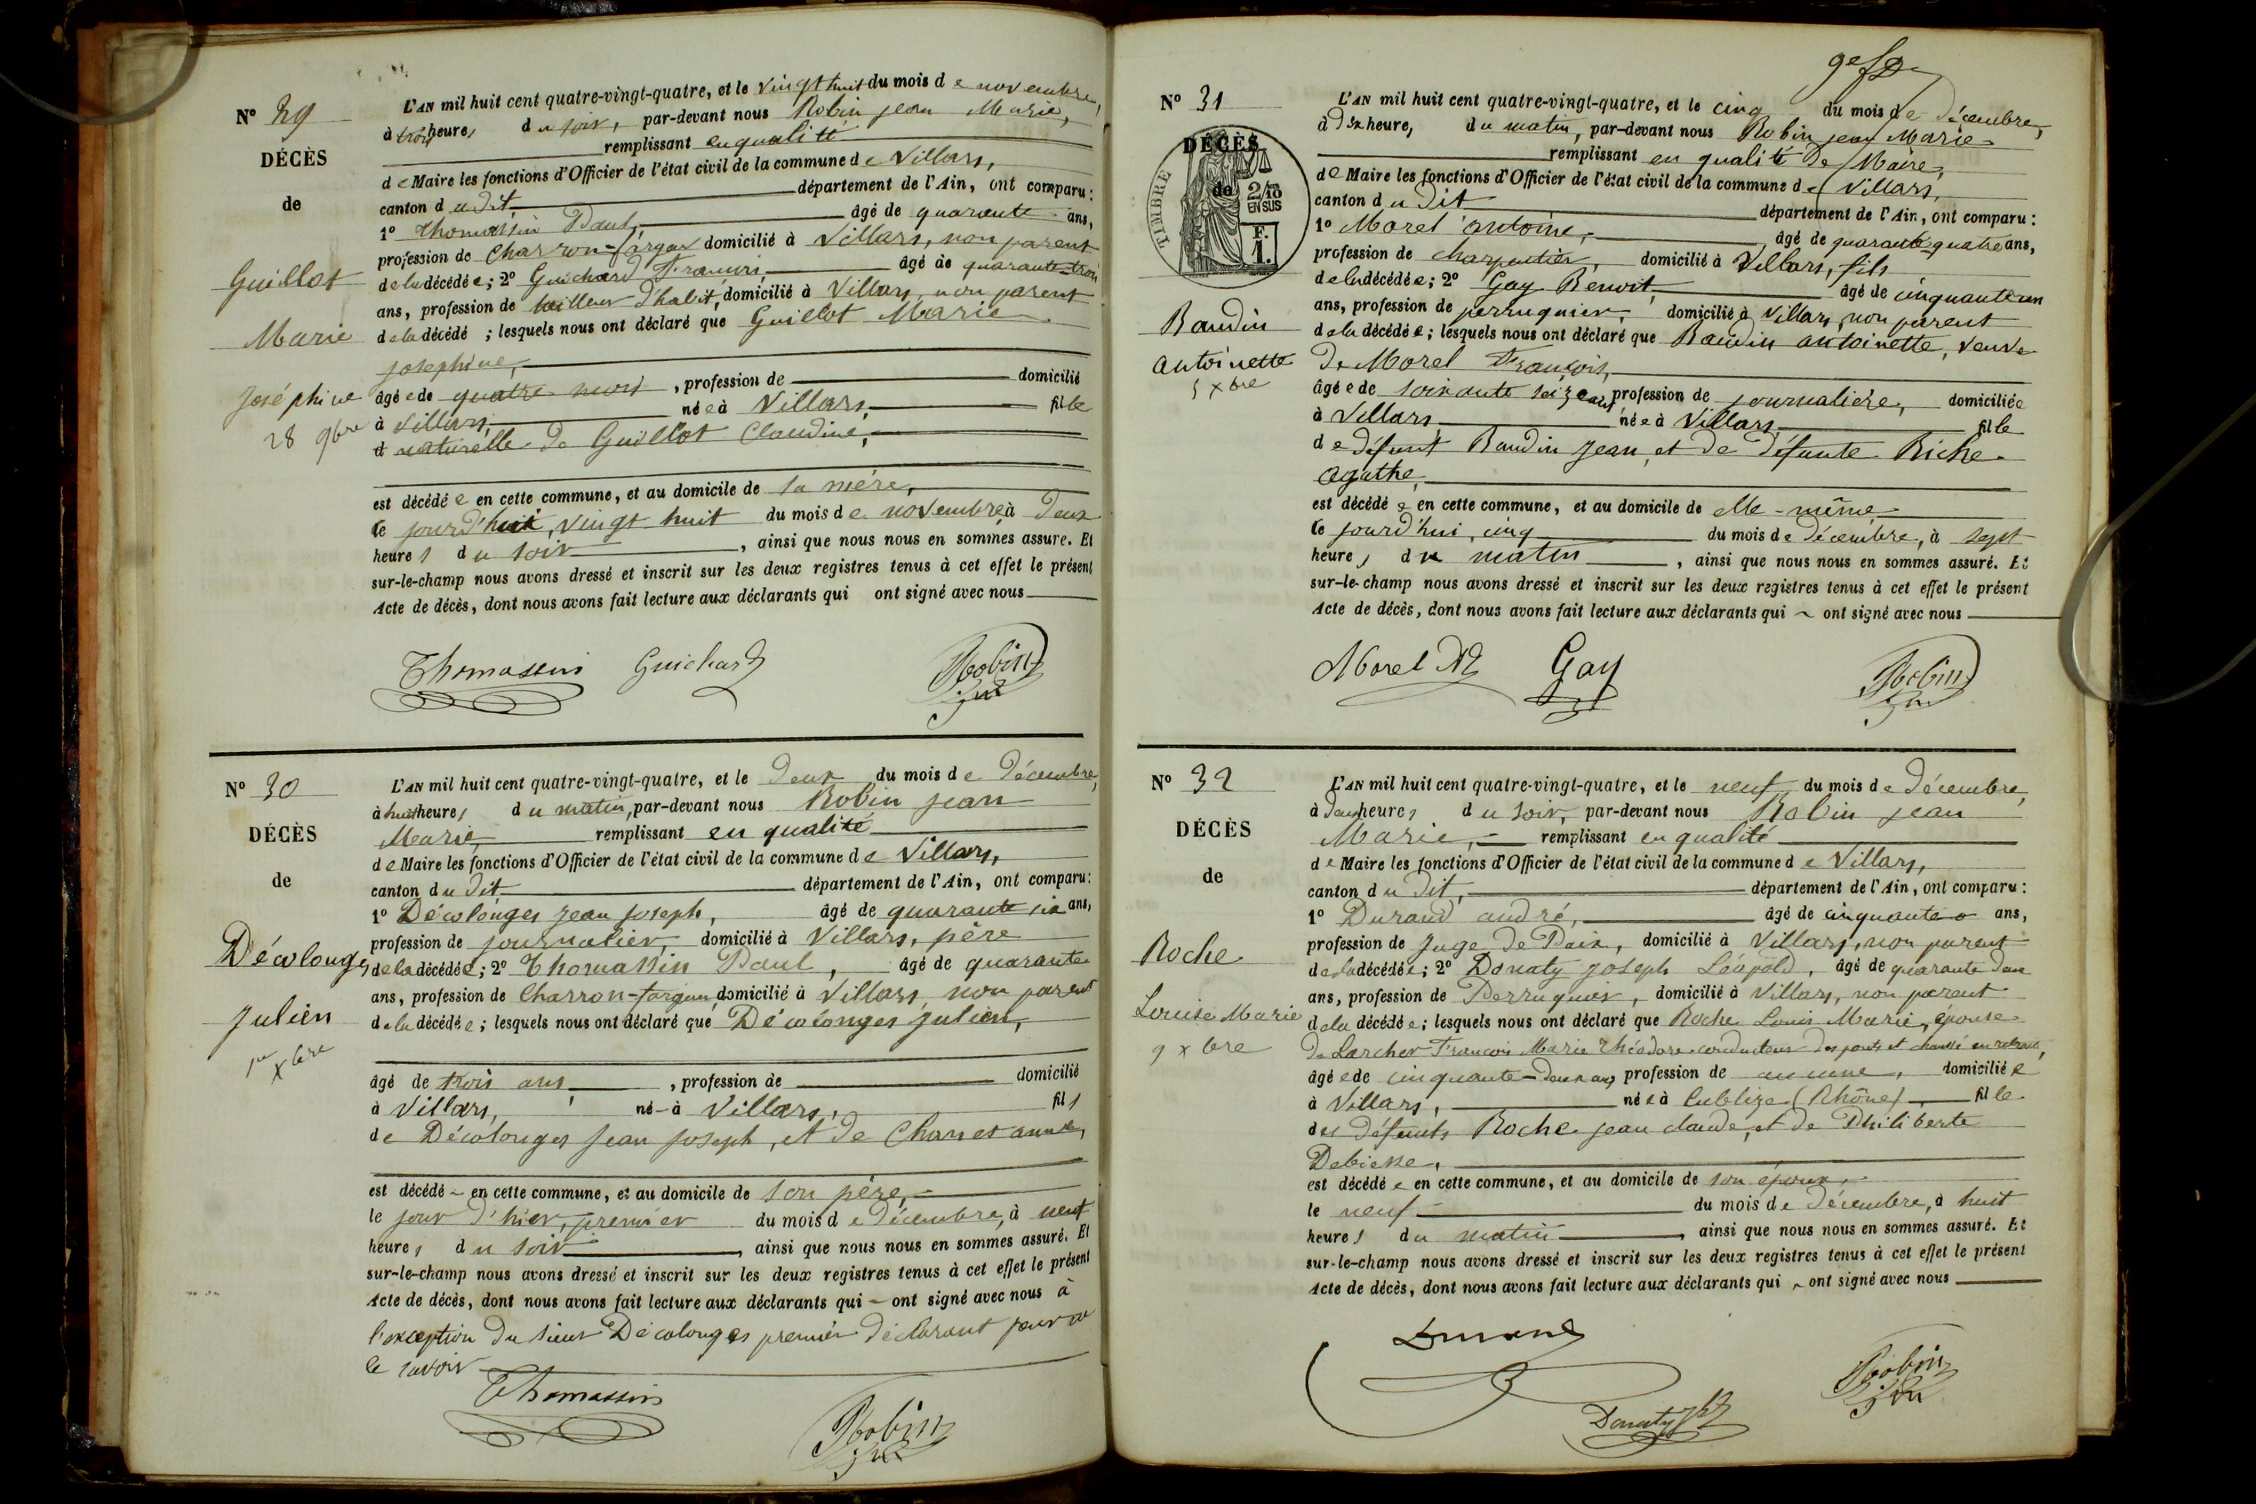 Nº 29
DÉCÈS
de
Guillot
Marie
Joséphine
28 9bre
L'AN mil huit cent quatre-vingt-quatre, et le vingt huit du mois de novembre,
à trois heures du soir, par-devant nous Robin jean Marie,
remplissant en qualité
de Maire les fonctions d'Officier de l'état civil de la commune de Villars,
canton dudit département de l'Ain, ont comparu:
1º Thomassin Paul, âgé de quarante ans,
profession de Charron-fargeur domicilié à Villars, non parent
de la décédée; 2º Guichard François âgé de quarante-trois
ans, profession de tailleur d'habit, domicilié à Villars, non parent
de la décédé ; lesquels nous ont déclaré que Guillot Marie
josephine,
âgée de quatre mois , profession de domicilié
à Villars, née à Villars, fille
d naturelle de Guillot Claudine,
est décédée en cette commune, et au domicile de sa mère,
le jourd'hui, vingt huit du mois de novembre à deux
heures du soir , ainsi que nous nous en sommes assuré. Et
sur-le-champ nous avons dressé et inscrit sur les deux registres tenus à cet effet le présent
Acte de décès, dont nous avons fait lecture aux déclarants qui ont signé avec nous
Thomassin Guichard Robin
Nº 30
DÉCÈS
de
Décolonges
Julien
1er Xbre
L'AN mil huit cent quatre-vingt-quatre, et le deux du mois de décembre,
à huit heures du matin, par-devant nous Robin jean
Marie, remplissant en qualité
de Maire les fonctions d'Officier de l'état civil de la commune de Villars,
canton dudit département de l'Ain, ont comparu:
1º Décolonges jean joseph, âgé de quarante six ans,
profession de journalier, domicilié à Villars, père
de la décédée; 2º Thomassin Paul, âgé de quarante
ans, profession de Charron-fargeur domicilié à Villars non parent
de la décédée; lesquels nous ont déclaré que Décolonges julien,
âgé de trois ans , profession de domicilié
à Villars, né à Villars, fils
de Décolonges jean joseph, et de Chanet anne,
est décédé en cette commune, et au domicile de son père,
le jour d'hier, premier du mois de décembre, à neuf
heures du soir , ainsi que nous nous en sommes assuré. Et
sur-le-champ nous avons dressé et inscrit sur les deux registres tenus à cet effet le présent
Acte de décès, dont nous avons fait lecture aux déclarants qui ont signé avec nous à
l'exception du sieur Décolonges premier déclarant pour ne
le savoir
Thomassin
Robin
Nº 31
DÉCÈS
de
TIMBRE
2/10
EN SUS
F.
1.
Baudin
antoinette
5 Xbre
L'AN mil huit cent quatre-vingt-quatre, et le cinq du mois de décembre,
à dix heures du matin, par-devant nous Robin jean Marie
remplissant en qualité de Maire,
de Maire les fonctions d'Officier de l'état civil de la commune de Villars,
canton dudit département de l'Ain, ont comparu:
1º Morel antoine, âgé de quarante-quatre ans,
profession de charpentier, domicilié à Villars, fils
de la décédée; 2º Gay Benoit, âgé de cinquante un
ans, profession de perruquier, domicilié à Villars, non parent
de la décédée; lesquels nous ont déclaré que Baudin antoinette, veuve
de Morel François,
âgée de soixante seize ans, profession de journalière, domiciliée
à Villars née à Villars fille
de défunt Baudin jean, et de défunte Riche
agathe,
est décédée en cette commune, et au domicile de elle-même
le jourd'hui, cinq du mois de décembre, à sept
heures du matin , ainsi que nous nous en sommes assuré. Et
sur-le-champ nous avons dressé et inscrit sur les deux registres tenus à cet effet le présent
Acte de décès, dont nous avons fait lecture aux déclarants qui ont signé avec nous
Morel Gay Robin
Nº 32
DÉCÈS
de
Roche
Louise Marie
9 Xbre
L'AN mil huit cent quatre-vingt-quatre, et le neuf du mois de décembre,
à deux heures du soir, par-devant nous Robin jean
Marie, remplissant en qualité
de Maire les fonctions d'Officier de l'état civil de la commune de Villars,
canton dudit, département de l'Ain, ont comparu:
1º Durand andré, âgé de cinquante ans,
profession de Juge de Paix, domicilié à Villars, non parent
de la décédée; 2º Donaty joseph Léopold, âgé de quarante deux
ans, profession de Perruquier, domicilié à Villars, non parent
de la décédée; lesquels nous ont déclaré que Roche Louis Marie, épouse
de Larcher François Marie Théodore conducteur des ponts et chaussé en retraite,
âgée de cinquante-deux ans, profession de aucune, domiciliée
à Villars, née à Cublize (Rhône), fille
des défunts Roche jean claude, et de Philiberte
Debiesse,
est décédée en cette commune, et au domicile de son époux,
le neuf du mois de décembre, à huit
heures du matin , ainsi que nous nous en sommes assuré. Et
sur-le-champ nous avons dressé et inscrit sur les deux registres tenus à cet effet le présent
Acte de décès, dont nous avons fait lecture aux déclarants qui ont signé avec nous
Durand
Donaty Robin